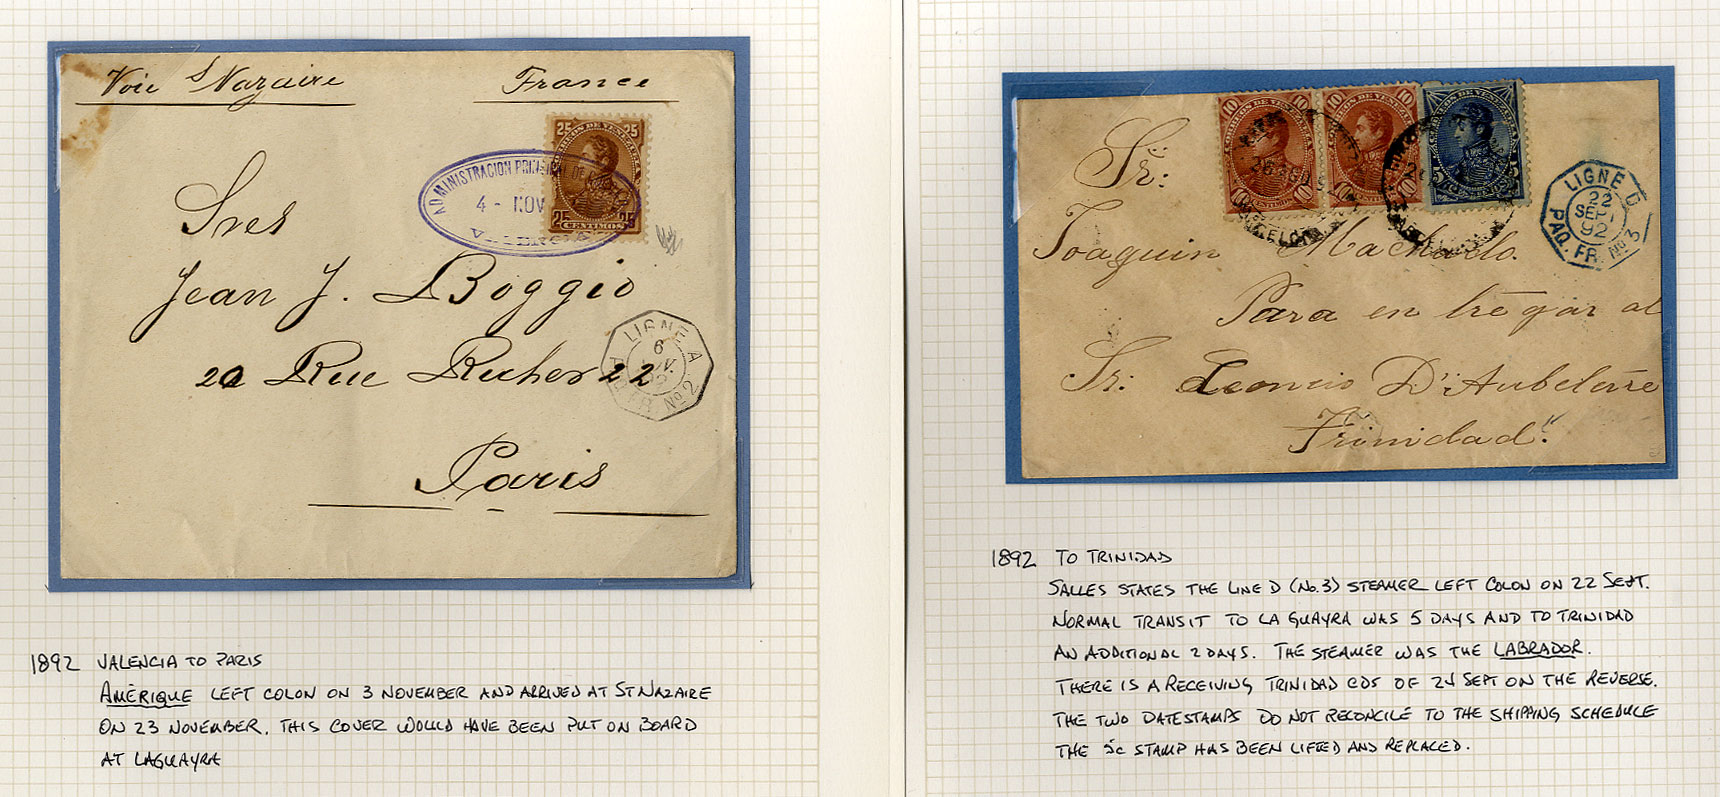 Voie St Nazaire France
25 25
CORREOS DE VENEZUELA
25 25
CENTIMOS
ADMINISTRACION PRINCIPAL DE
4 - NOV
VALENCIA
Sres
Jean J. Boggio
22 Rue Rocher 22
Paris
LIGNE A
6
NOV.
92
PAQ. FR. No 2
1892 VALENCIA TO PARIS
AMÉRIQUE LEFT COLON ON 3 NOVEMBER AND ARRIVED AT ST NAZAIRE
ON 23 NOVEMBER. THIS COVER WOULD HAVE BEEN PUT ON BOARD
AT LAGUAYRA
10 10
CORREOS DE VENEZUELA
10 10
10 10
CORREOS DE VENEZUELA
10 10
VENEZUELA
5 5
CENTIMOS
BARCELONA
LIGNE D
22
SEPT
92
PAQ. FR. No 3
Sr:
Joaquin Machado.
Para en tregar al
Sr: Leoncio D'Aubeterre
Trinidad.
1892 TO TRINIDAD
SALLES STATES THE LINE D (NO.3) STEAMER LEFT COLON ON 22 SEPT.
NORMAL TRANSIT TO LA GUAYRA WAS 5 DAYS AND TO TRINIDAD
AN ADDITIONAL 2 DAYS. THE STEAMER WAS THE LABRADOR.
THERE IS A RECEIVING TRINIDAD CDS OF 24 SEPT ON THE REVERSE.
THE TWO DATESTAMPS DO NOT RECONCILE TO THE SHIPPING SCHEDULE
THE 5c STAMP HAS BEEN LIFTED AND REPLACED.